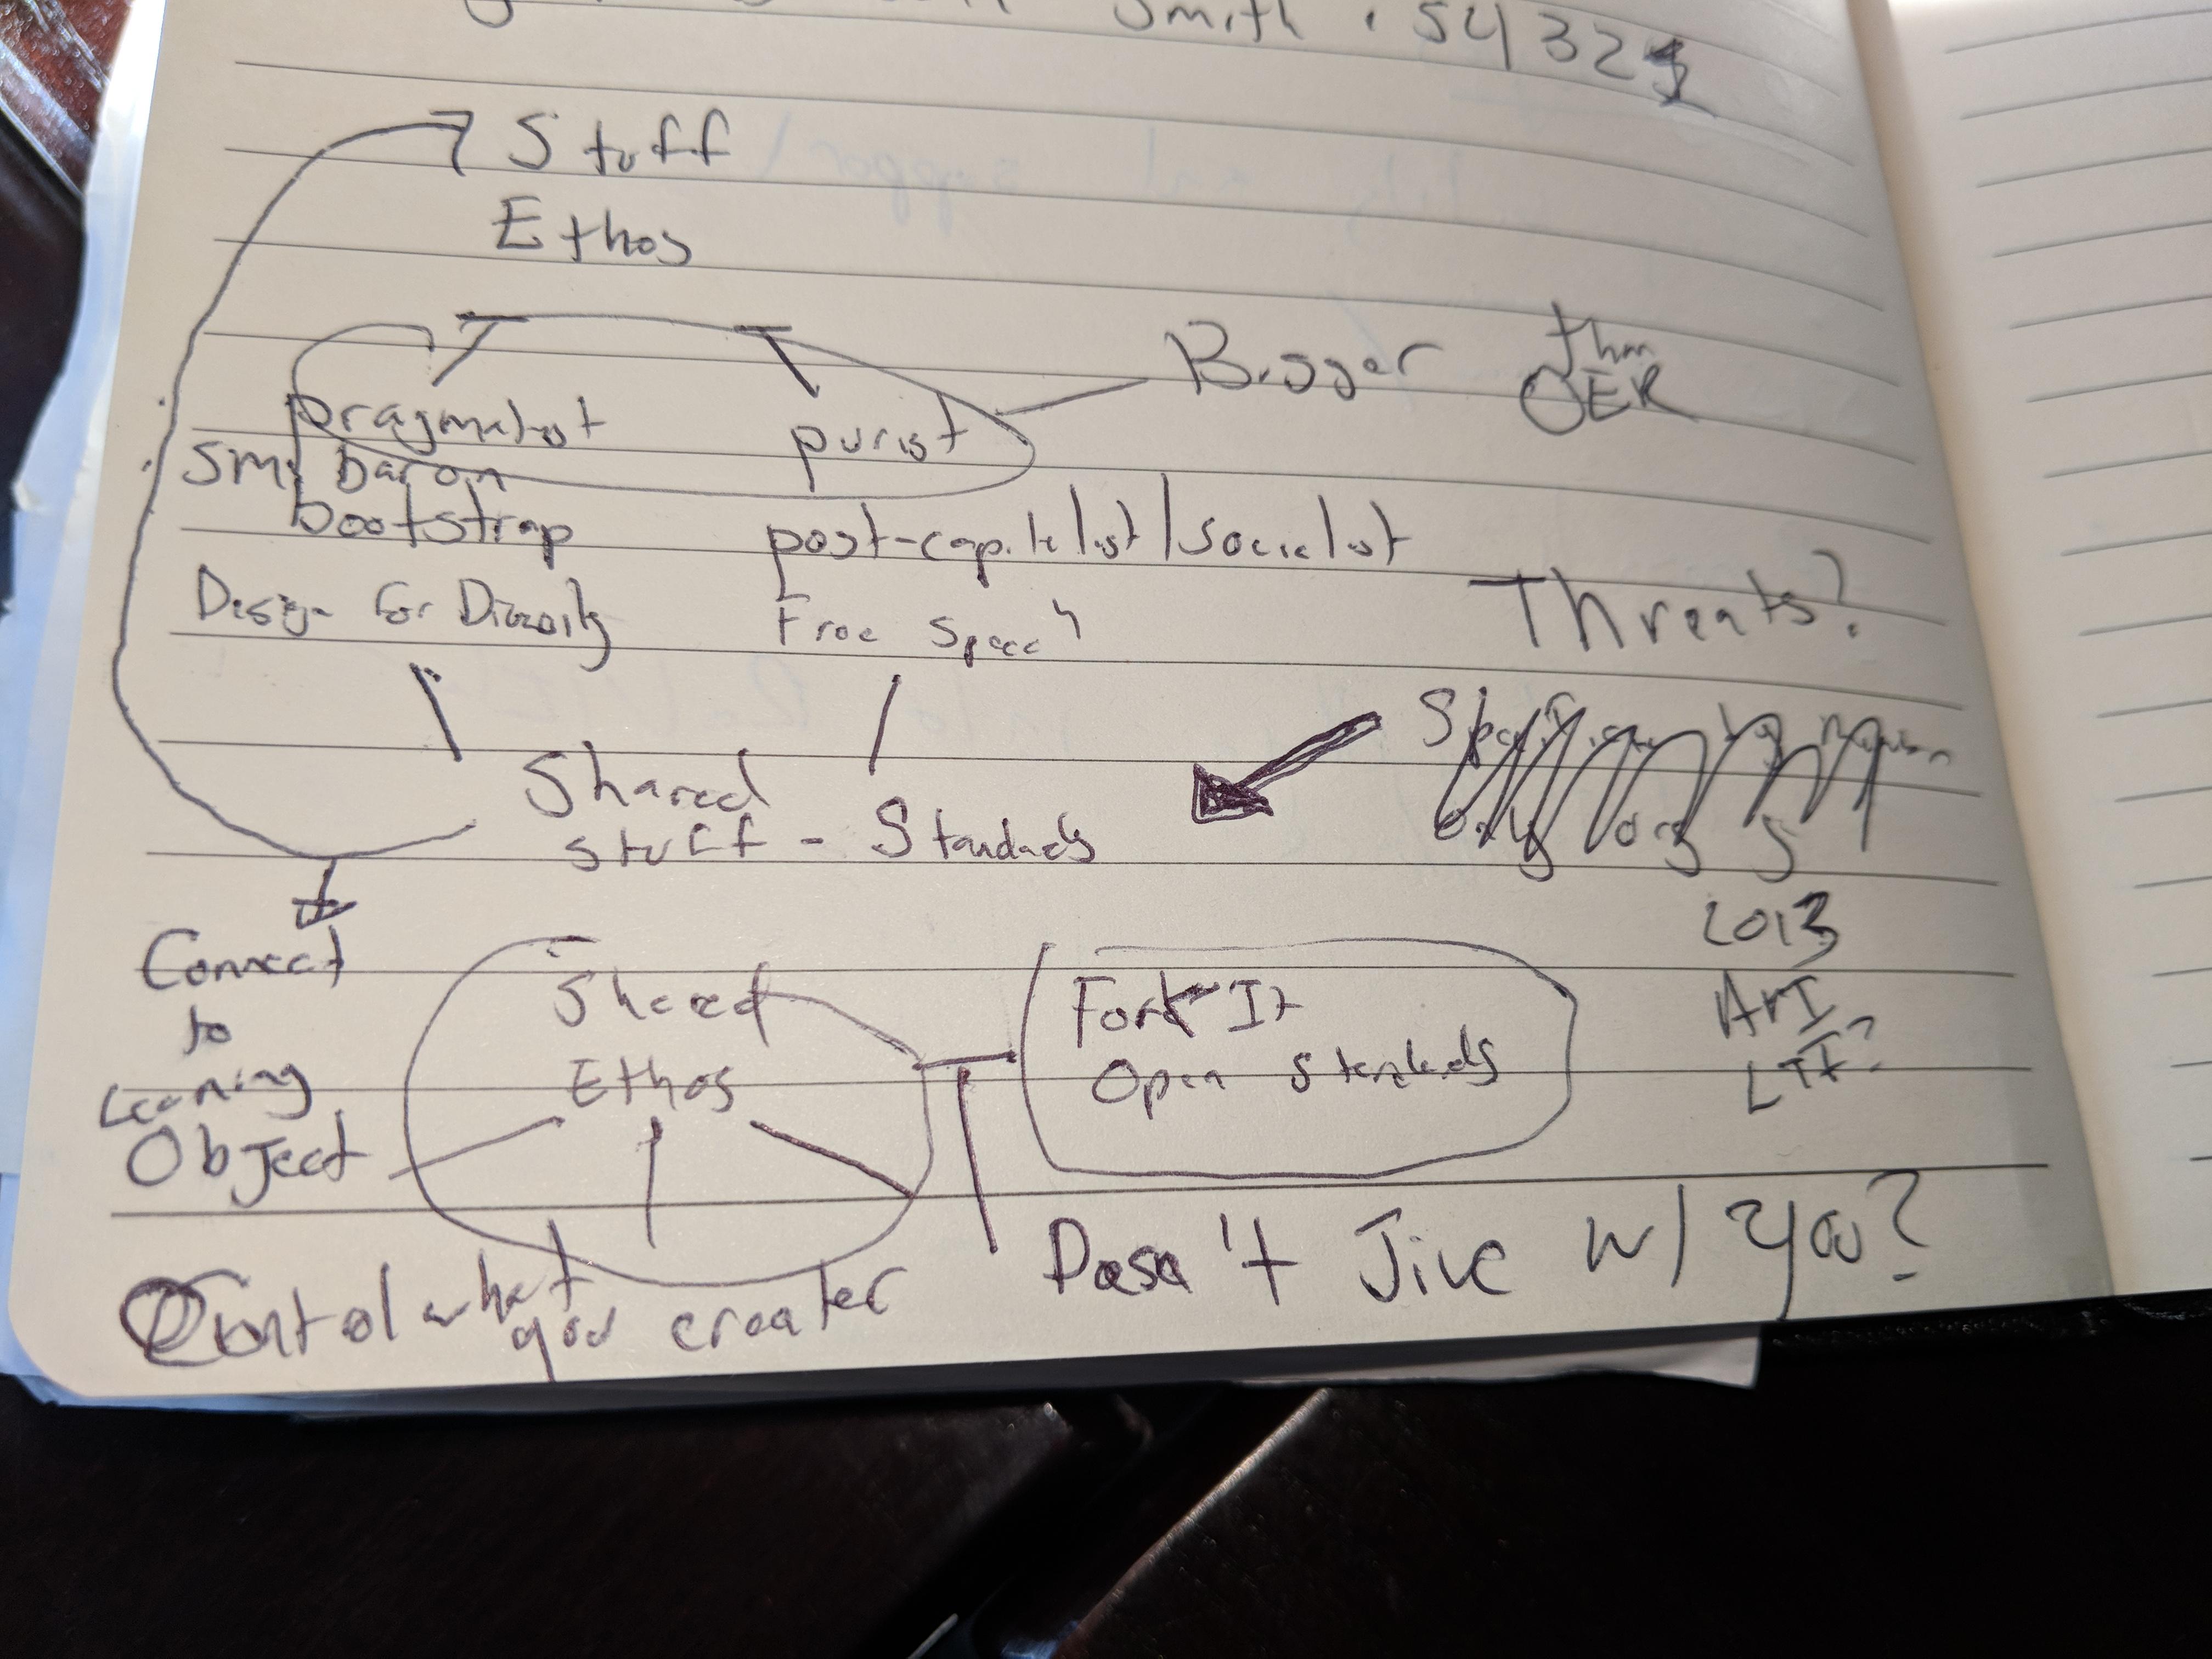 Smith . 54321
Stuff
Ethos
Bigger than
OER
pragmatist purist
sm. baron
bootstrap
post-capitalist/socialist
Design for Diversity
Free speech
Threats?
Shared
Stuff - Standards
only org
2013
Connect
to
Learning
Object
Shared
Ethos
Fork It
Open Standards
LTI?
Doesn't Jive w/ you?
Control what
you creater